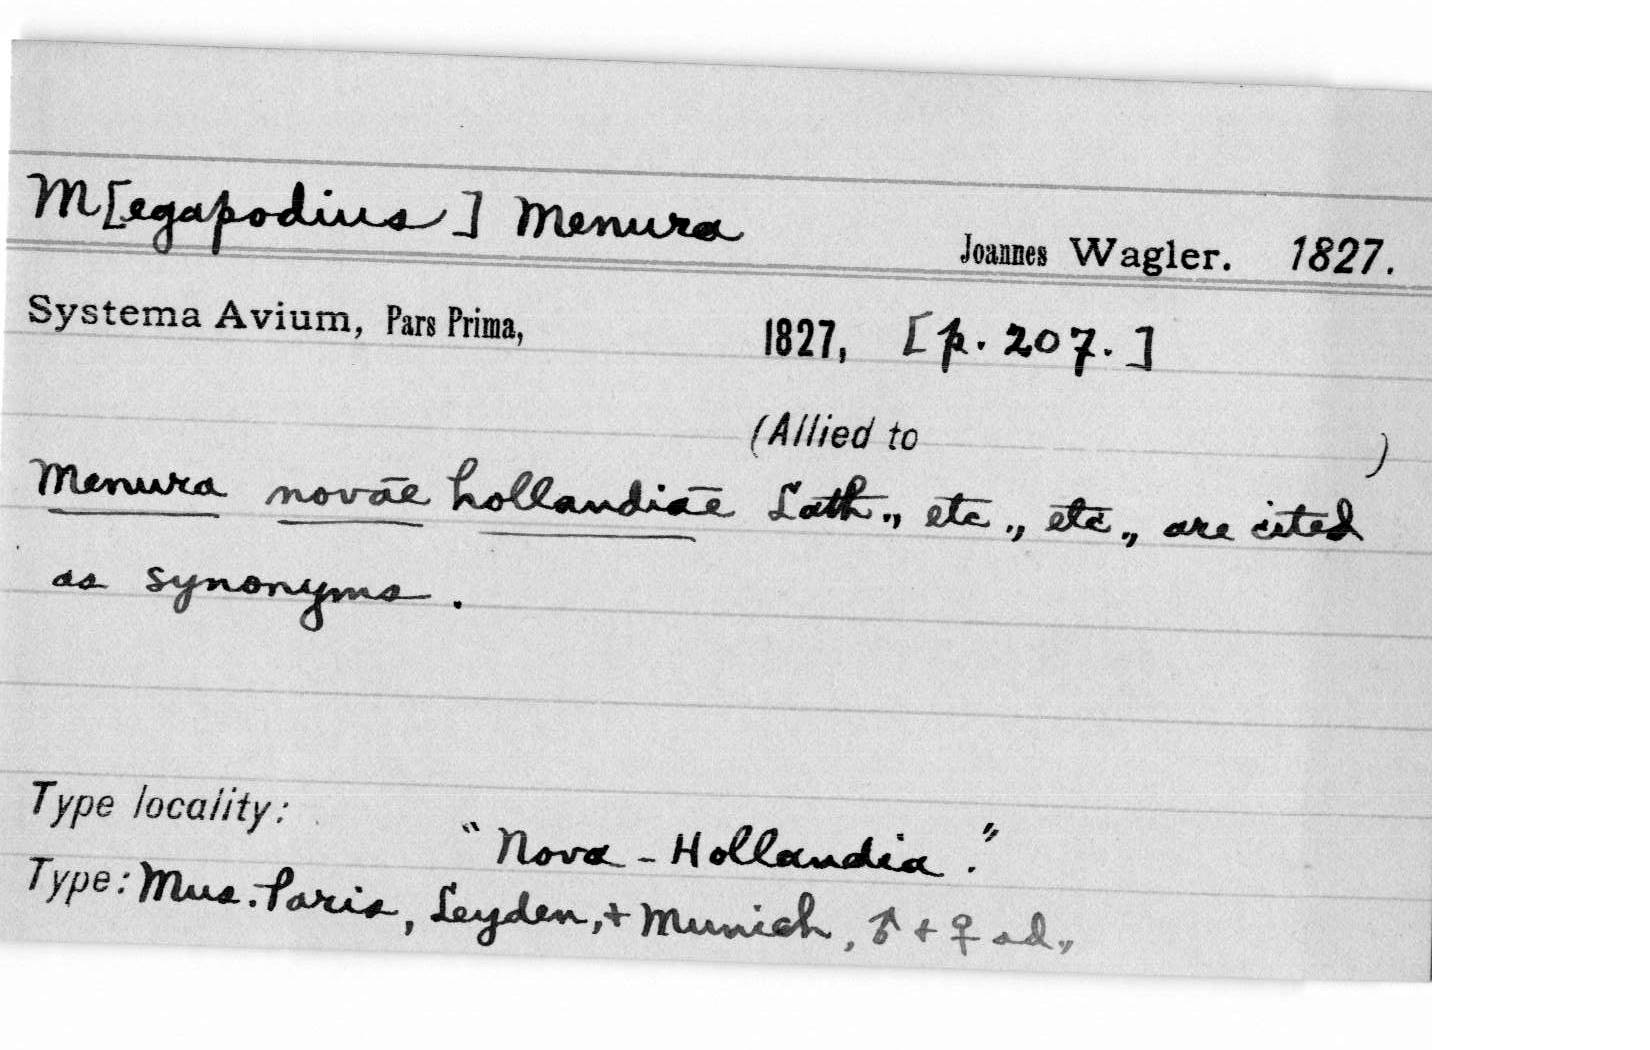 M[egapodius] Menura
Joannes Wagler. 1827.
Systema Avium, Pars Prima, 1827, [p. 207.]
(Allied to )
Menura novae hollandiae Lath., etc., etc., are cited
as synonyms.
Type locality:
"Nova-Hollandia."
Type: Mus. Paris, Leyden, + Munich, ♂ + ♀ ad.,